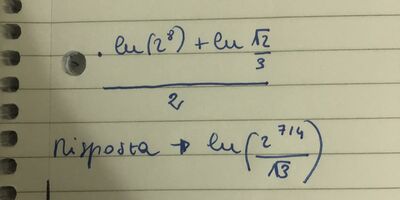 . ln(2⁸) + ln √2/3
2
Risposta → ln(2^7/4 / √3)